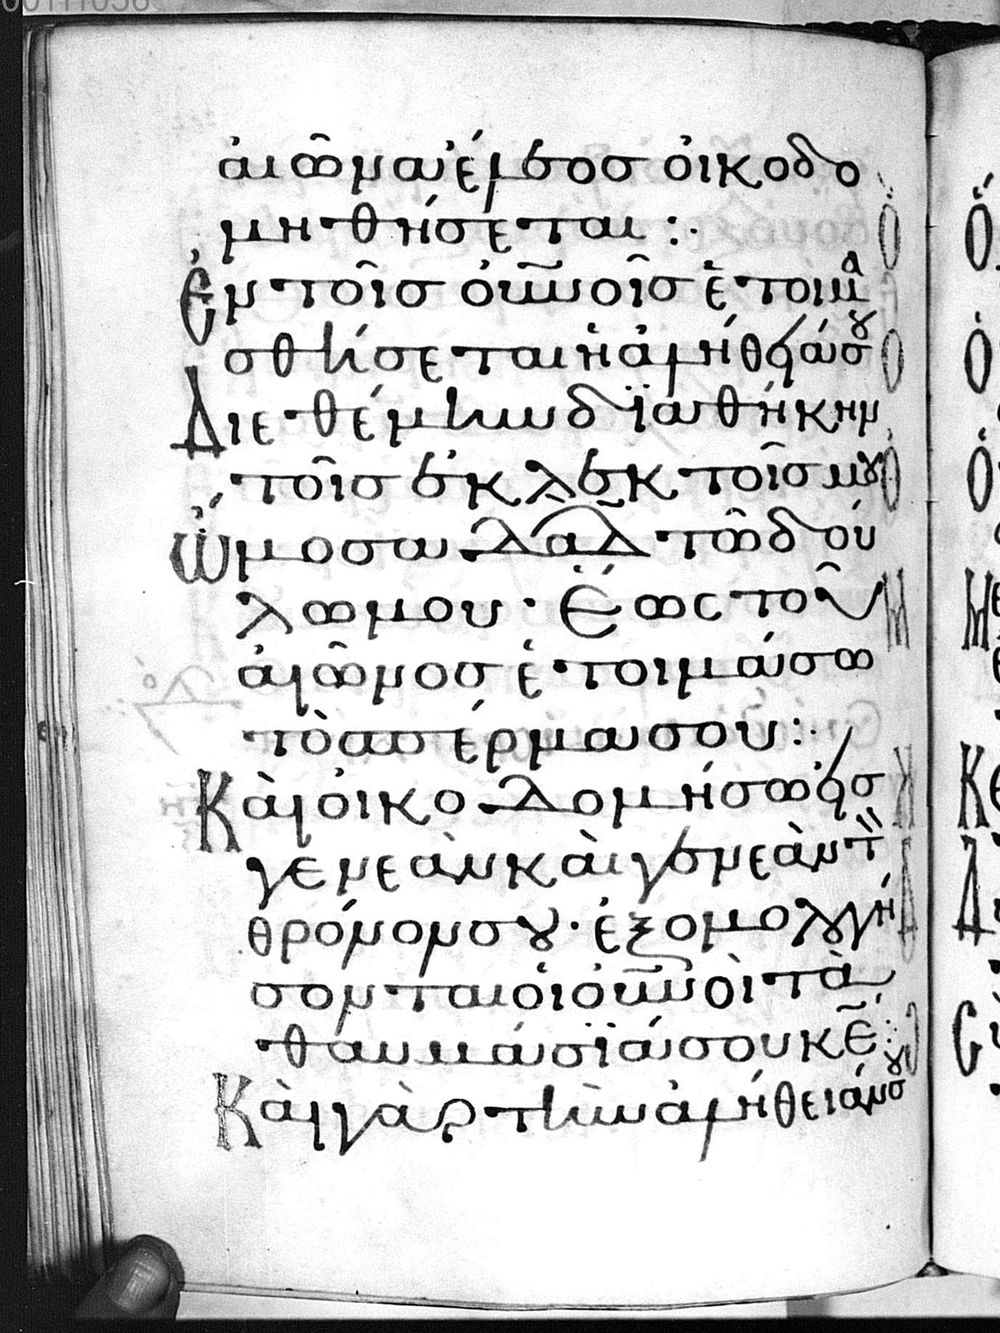 αἰῶνα ἔλεος οἰκοδο
μηθήσεται :·
Ἐν τοῖς οὐνοῖς ἑτοιμα
σθήσεται ἡ ἀλήθεια σου
Διεθέμην διαθήκην
τοῖς ἐκλεκτοῖς μου
Ὤμοσα δαδ τῶ δού
λω μου · Ἕως τοῦ
αἰῶνος ἑτοιμάσω
τὸ σπέρμα σου :·
Καὶ οἰκοδομήσω εἰς
γενεὰν καὶ γενεὰν τὸν
θρόνον σου · ἐξομολογή
σονται οἱ οὐνοὶ τὰ
θαυμάσιά σου κε :
Καὶ γὰρ τὴν ἀλήθειάν σου